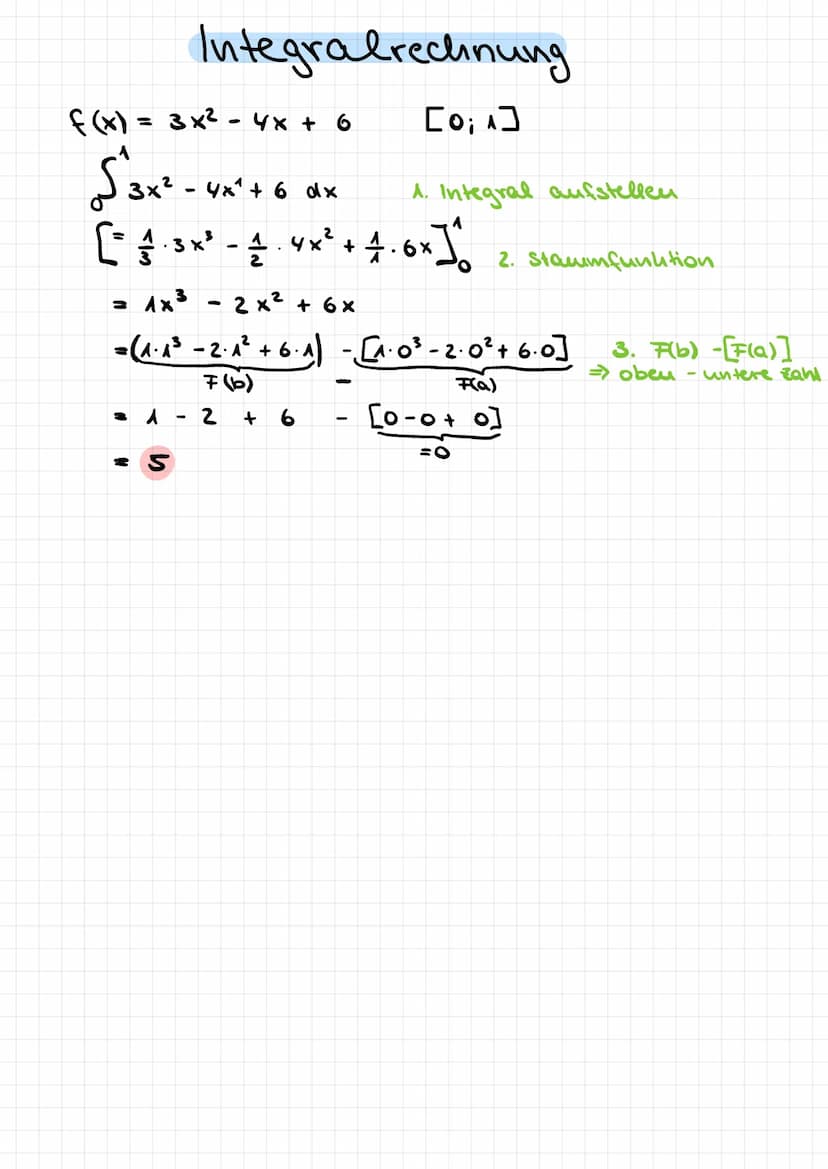 Integralrechnung
f(x) = 3x² - 4x + 6 [0; 1]
∫₀¹ 3x² - 4x¹ + 6 dx 1. Integral aufstellen
[= 1/3 · 3x³ - 1/2 · 4x² + 1/1 · 6x]₀¹ 2. Stammfunktion
= 1x³ - 2x² + 6x
= (1·1³ - 2·1² + 6·1) - [1·0³ - 2·0² + 6·0] 3. F(b) - [F(a)]
F(b) - F(a) ⇒ oben - untere Zahl
= 1 - 2 + 6 - [0 - 0 + 0]
= 0
= 5